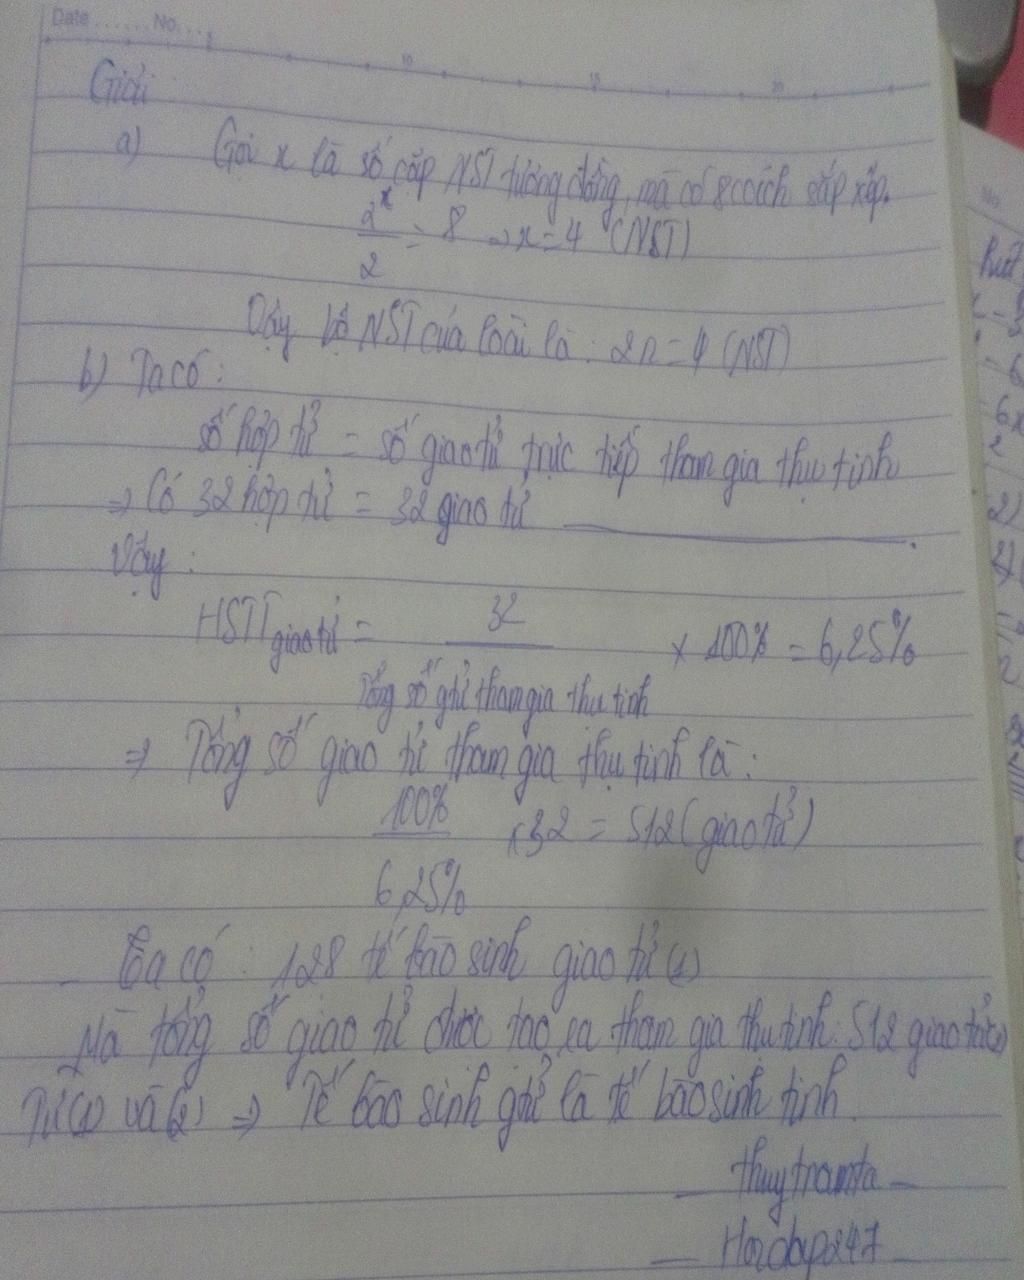 Date ...... No. ...
10 15 20
Giải
a) Gọi x là số cặp NST tương đồng, mà có 8 cách sắp xếp.
2^x / 2 = 8 → x = 4 (NST)
Vậy bộ NST của loài là: 2n = 4 (NST)
b) Ta có:
số hợp tử = số giao tử trực tiếp tham gia thụ tinh
⇒ Có 32 hợp tử = 32 giao tử ________.
Vậy:
HSTT giao tử = 32 / Tổng số gtử tham gia thụ tinh × 100% = 6,25%
⇒ Tổng số giao tử tham gia thụ tinh là:
100% / 6,25% × 32 = 512 (giao tử)
Ta có: 128 tế bào sinh giao tử (1)
Mà tổng số giao tử được tạo ra tham gia thụ tinh: 512 giao tử (2)
Từ (1) và (2) ⇒ Tế bào sinh gtử là tế bào sinh tinh.
— thuytramta —
— Hoidap247 —